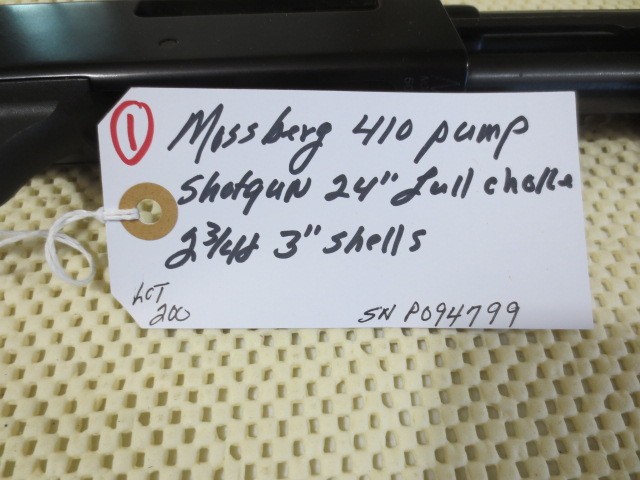 1
Mossberg 410 pump
Shotgun 24" full choke
2 3/4 & 3" shells
LOT
200
SN P094799